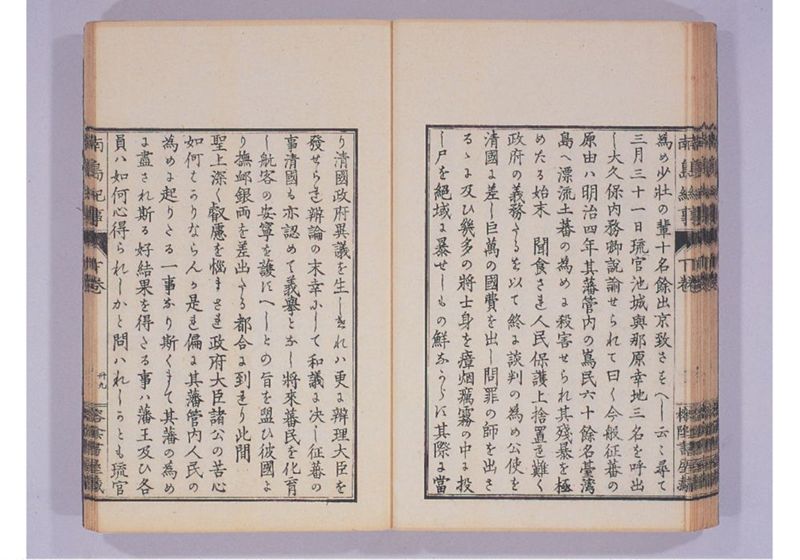 為め少壮の輩十名餘出京致させへし云々尋て
三月三十一日琉官池城與那原幸地三名を呼出
し大久保内務卿說諭せられて曰く今般征蕃の
原由ハ明治四年其藩管内の嶌民六十餘名臺灣
島へ漂流土蕃の為めに殺害せられ其殘暴を極
めたる始末 聞食され人民保護上捨置き難く
政府の義務たるを以て終に談判の為め公使を
清國に差し巨萬の國費を出し問罪の師を出さ
るゝに及ひ幾多の將士身を瘴烟癘霧の中に投
し尸を絕域に暴せしもの鮮なからに其際に當
り清國政府異議を生しけれハ更に辨理大臣を
發せられ辨論の末幸にして和議に决し征蕃の
事清國も亦認めて義擧となし將來蕃民を化育
し航客の安寧を護にへしとの旨を盟ひ彼國よ
り撫䘏銀両を差出たる都合に到り此間
聖上深く叡慮を惱まされ政府大臣諸公の苦心
如何はかりならんか是れ偏に其藩管内人民の
為めに起りたる一事なり斯くまて其藩の為め
に盡され斯る好結果を得さる事ハ藩王及ひ各
員ハ如何心得られしかと問ハれしかとも琉官
南島紀事
下卷
卅九